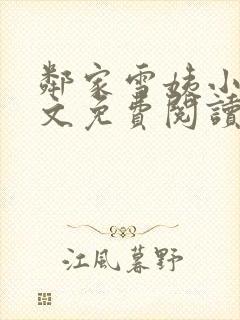 鄰家雪姨小
文免費閱讀
江風暮野